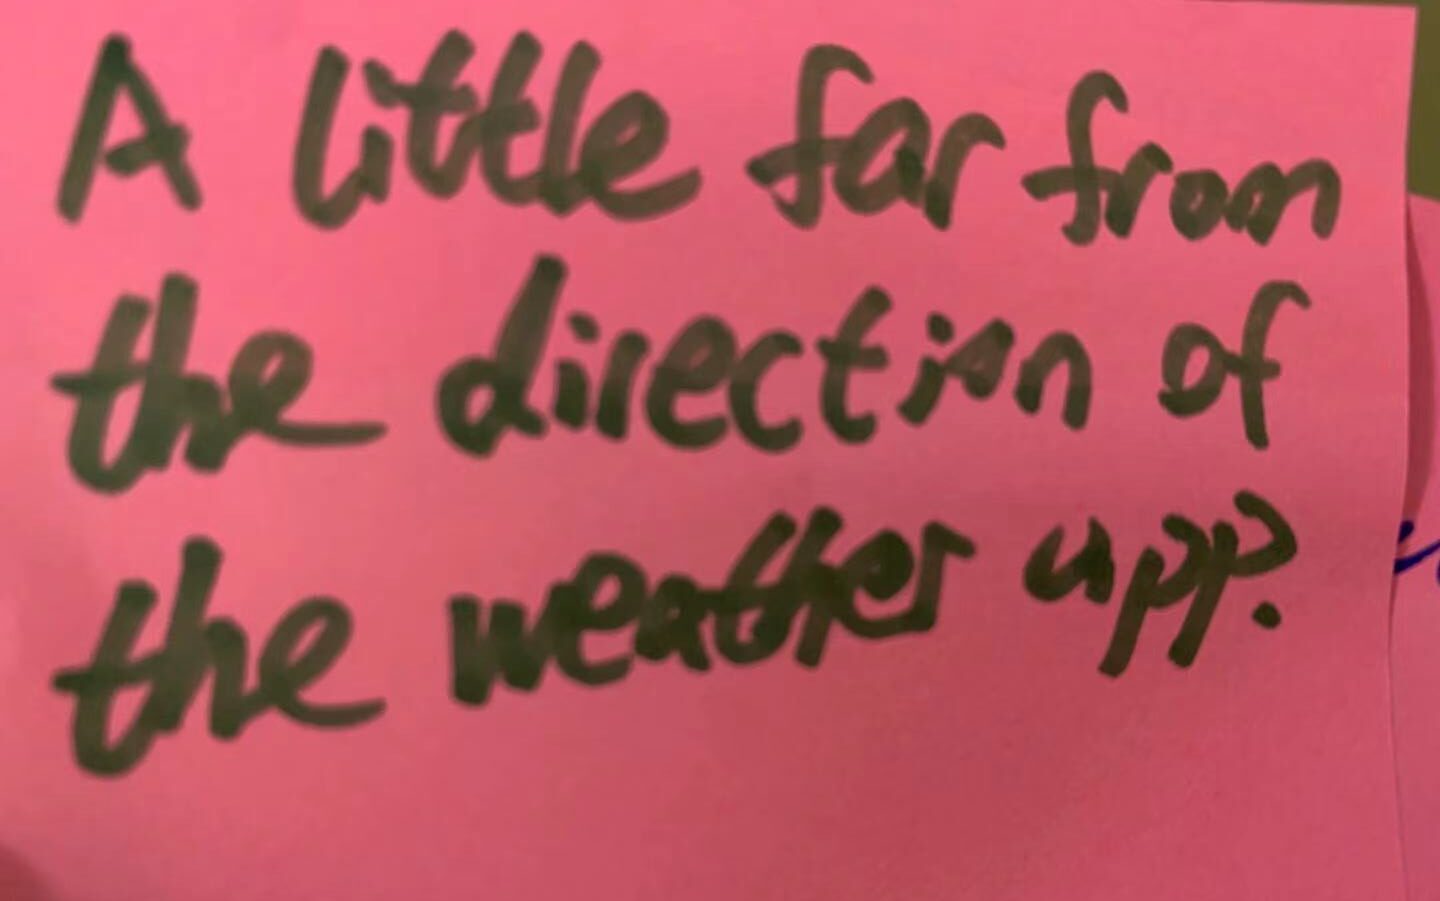 A little far from
the direction of
the weather app?